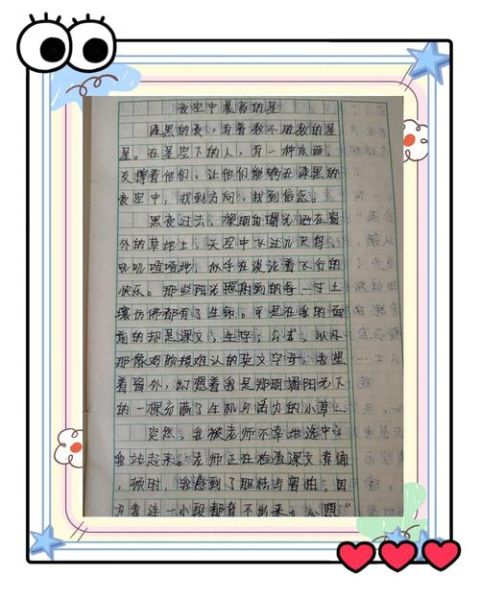 夜空中最亮的星
漆黑的夜，有着数不胜数的星
星。在星空下的人，有一种东西
支撑着他们，让他们能够在漆黑的
夜空中，找到方向，找到信念。
黑夜过去，绚丽的曙光洒在窗
外的草地上，天空中飞过几只鸟，
叽叽喳喳地，似乎在谈论着飞行的
快乐。那些阳光照射到的每一寸土
壤仿佛都有了生命。可是在我的面
前的却是课文，生字，公式，以及
那像对联般难认的英文字母。我望
着窗外，幻想着我是那明媚阳光下
的一棵充满了生机与活力的小草…
突然，我被老师不幸地选中
我站起来。老师正在检查课文背诵
，顿时，我感到了胆怯与害怕，因
为我连一小段都背不出来。